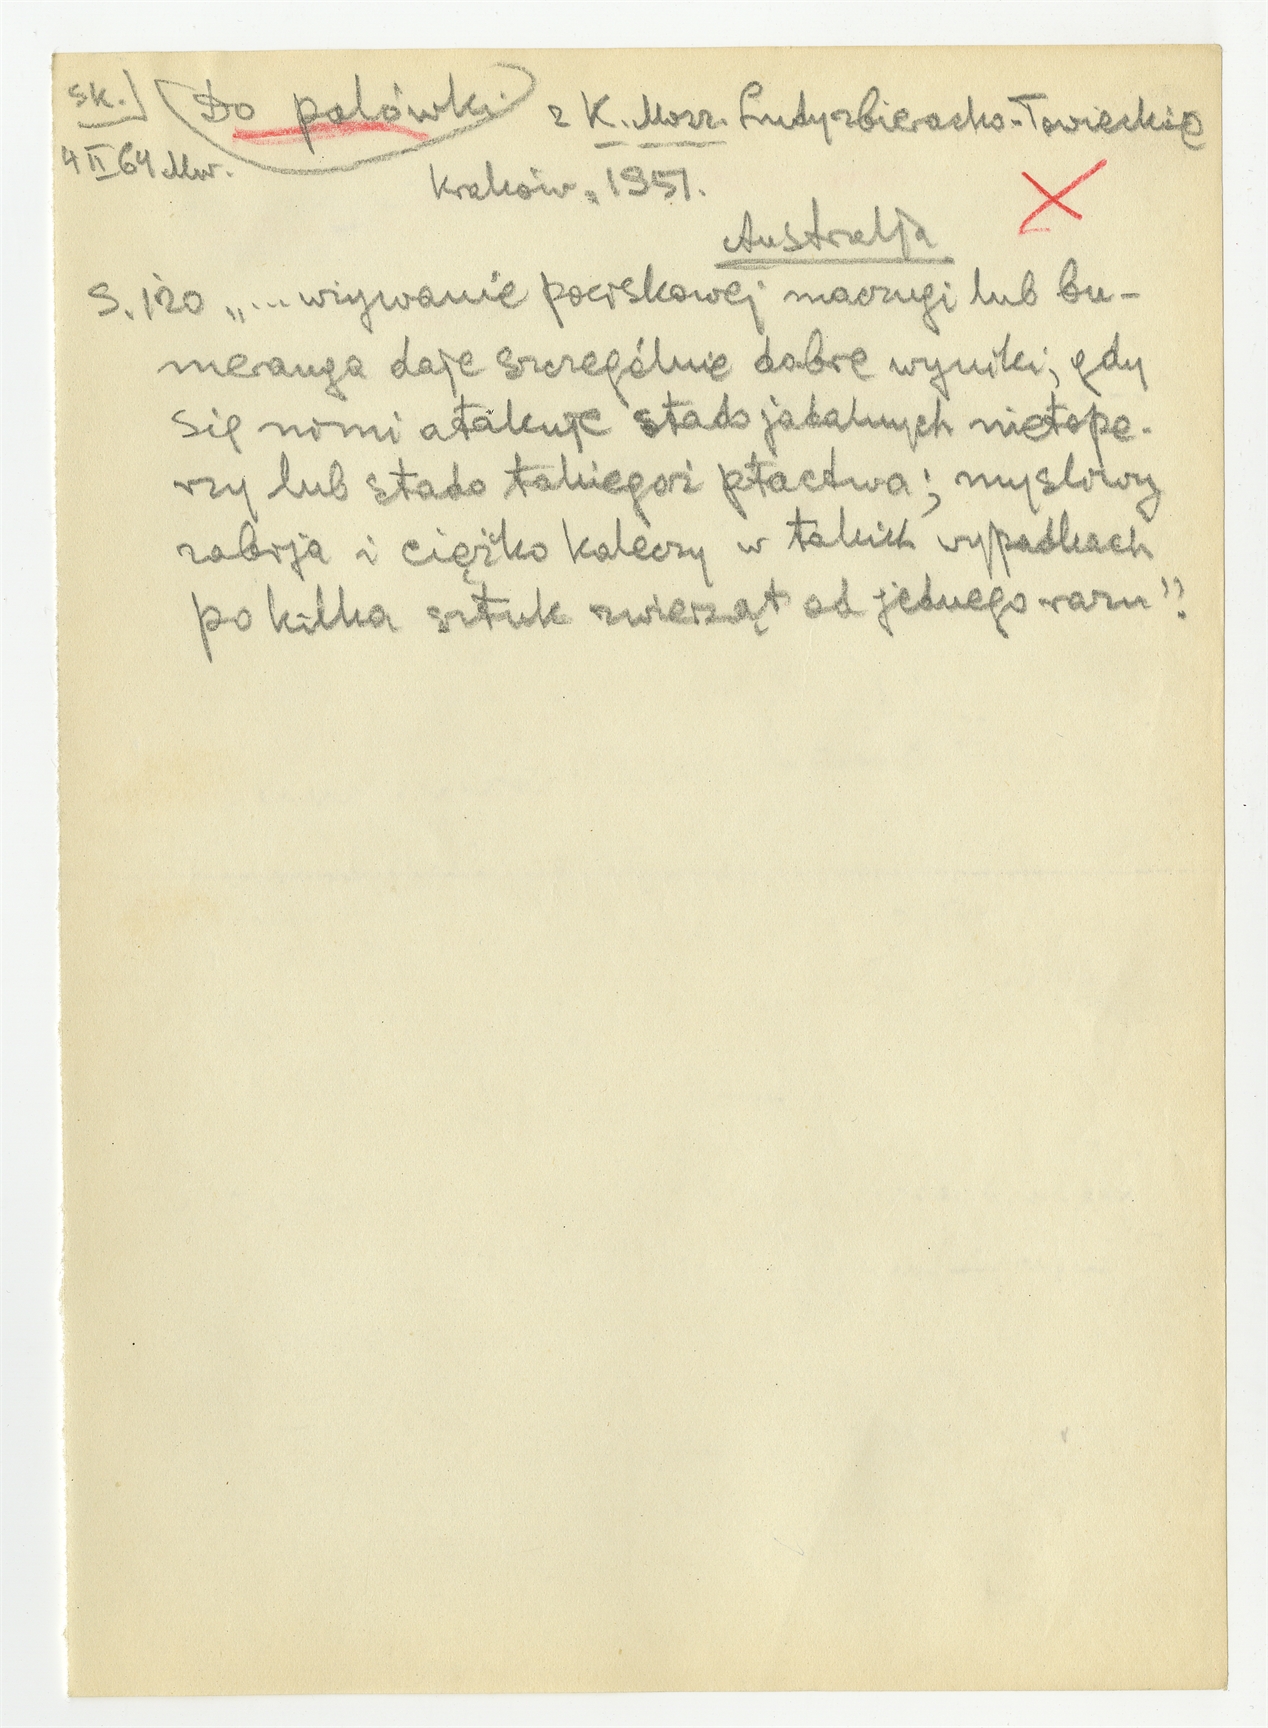 sk.] Do polówki z K. Mosz. Ludy zbieracko-łowieckie
4 II 64 Mw.
Kraków, 1951.
Australja
S. 120 „...używanie pociskowej maczugi lub bu-
meranga daje szczególnie dobre wyniki, gdy
się nimi atakuje stado jadalnych nietope-
rzy lub stado takiegoż ptactwa; myśliwy
zabija i ciężko kaleczy w takich wypadkach
po kilka sztuk zwierząt od jednego razu".